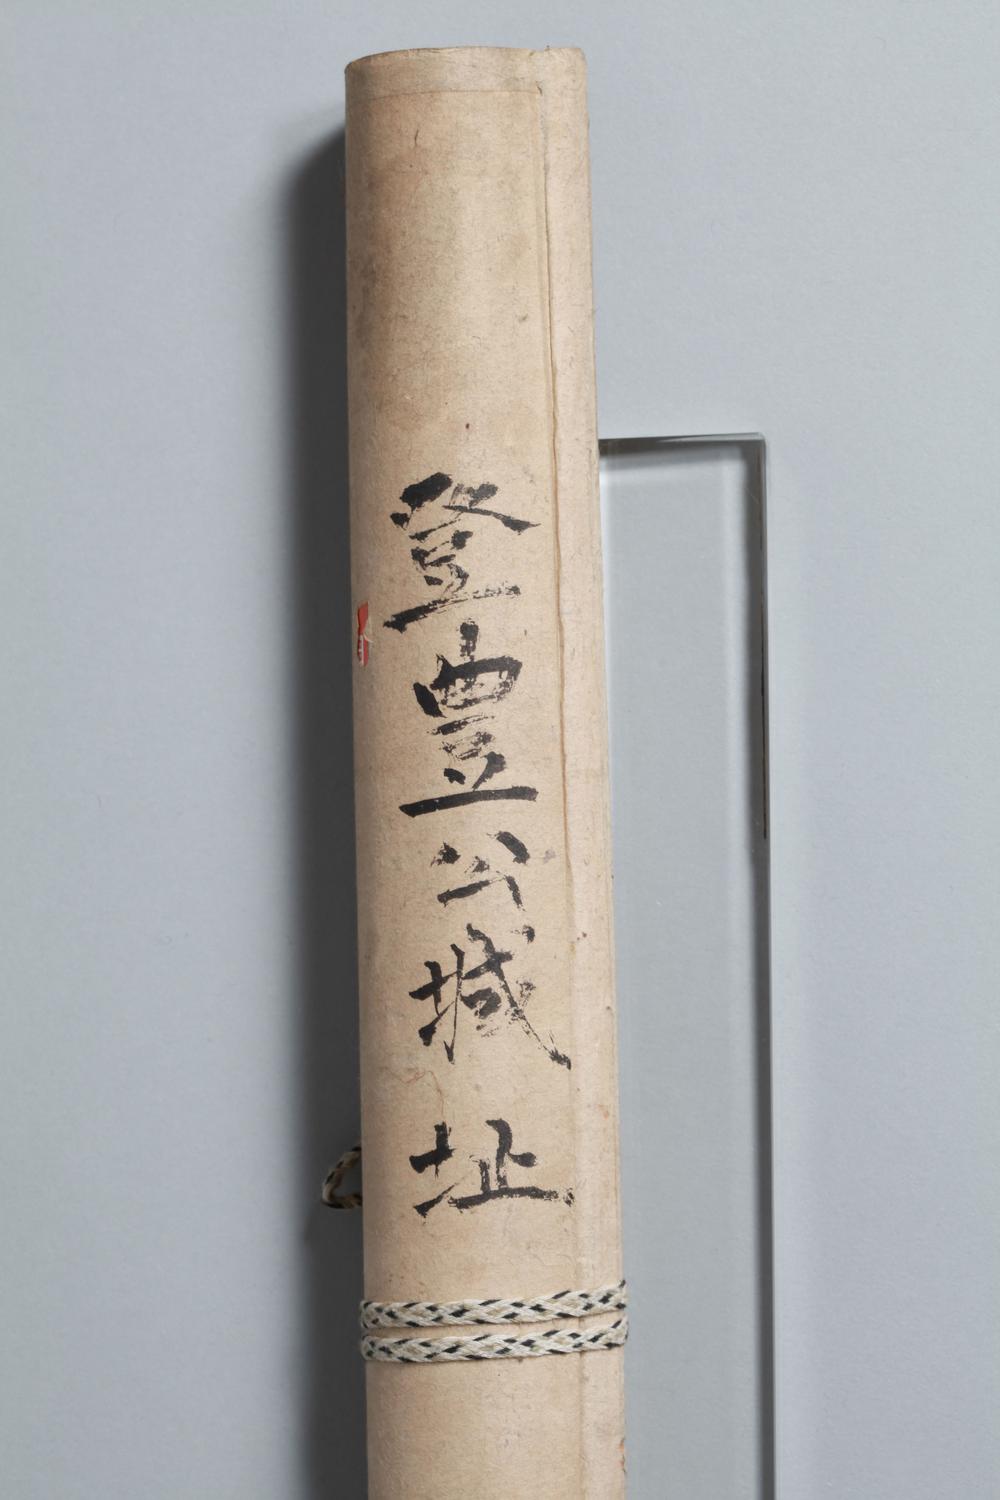 登豊公城址